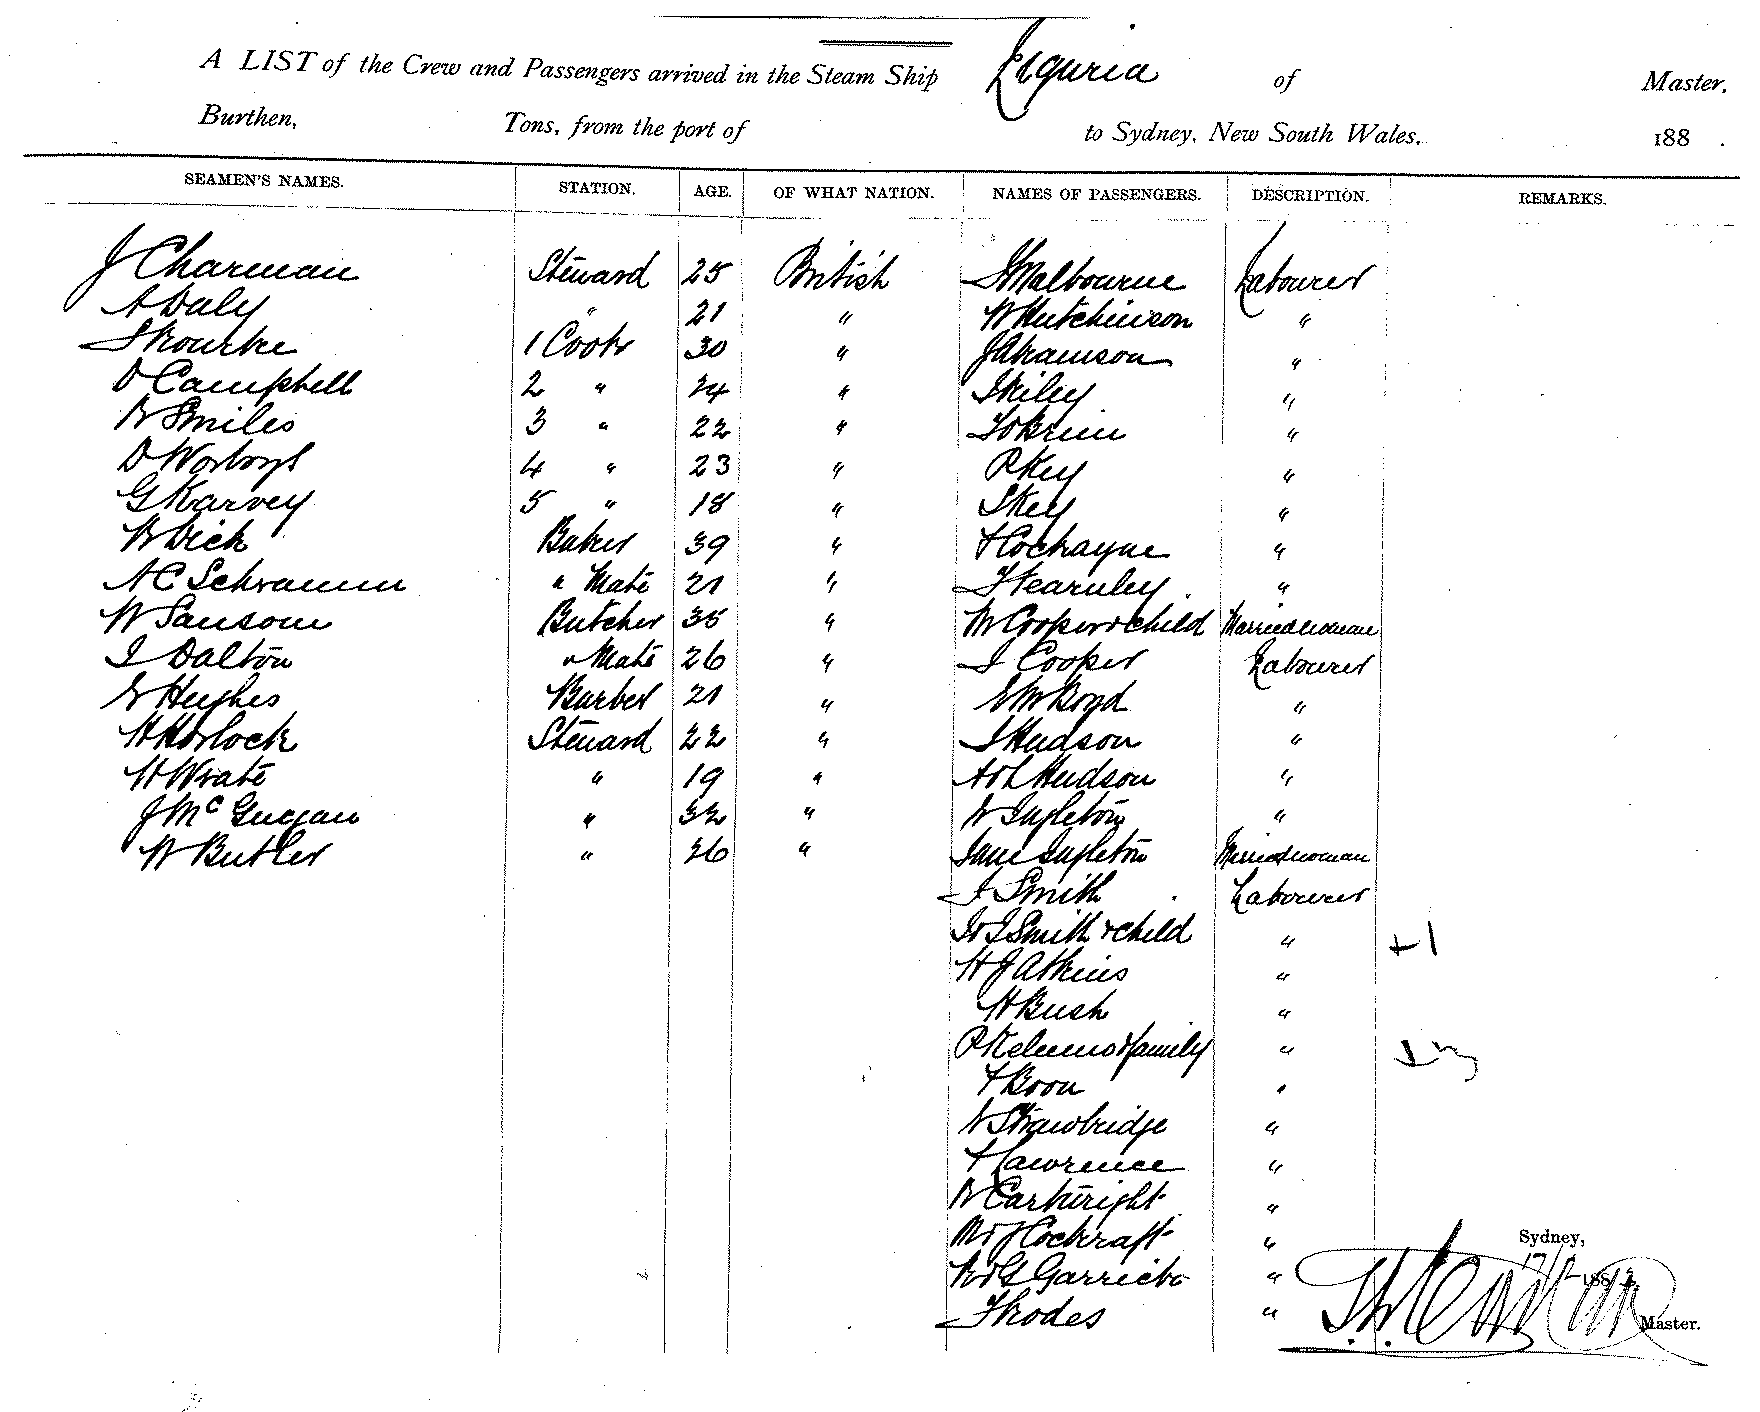 A LIST of the Crew and Passengers arrived in the Steam Ship Liguria of Master.
Burthen, Tons, from the port of to Sydney, New South Wales, 188 .
SEAMEN'S NAMES. STATION. AGE. OF WHAT NATION. NAMES OF PASSENGERS. DESCRIPTION. REMARKS.
J Charman Steward 25 British Malbourne Labourer
A Daly " 21 " W Hutchinson "
Rourke 1 Cook 30 " J Abramson "
D Campbell 2 " 24 " Kiley "
W Smiles 3 " 22 " "
D Worboys 4 " 23 " P Key "
G Harvey 5 " 18 " S Key "
W Dick Baker 39 " F Cockayne "
A C Schramm " Mate 21 " Fearnley "
W Sansom Butcher 35 " M Cooper & child Married woman
J Dalton " Mate 26 " J Cooper Labourer
Hughes Barber 21 " Boyd "
H Horlock Steward 22 " J Hudson "
H Wrate " 19 " A & L Hudson "
J McGuggan " 32 " W Ingleton "
W Butler " 26 " Jane Ingleton Married woman
J Smith Labourer
Smith & child " +1
H J Atkins "
H Bush "
P & family "
F Boon "
Strawbridge "
F Lawrence "
W Cartwright "
M & J Cockcraft "
Garrick "
Rodes "
Sydney,
188
Master.